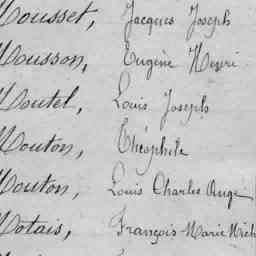 Mousset, Jacques Joseph
Mousson, Eugène Henri
Moutel, Louis Joseph
Mouton, Théophile
Mouton, Louis Charles Ange
Motais, François Marie Mich